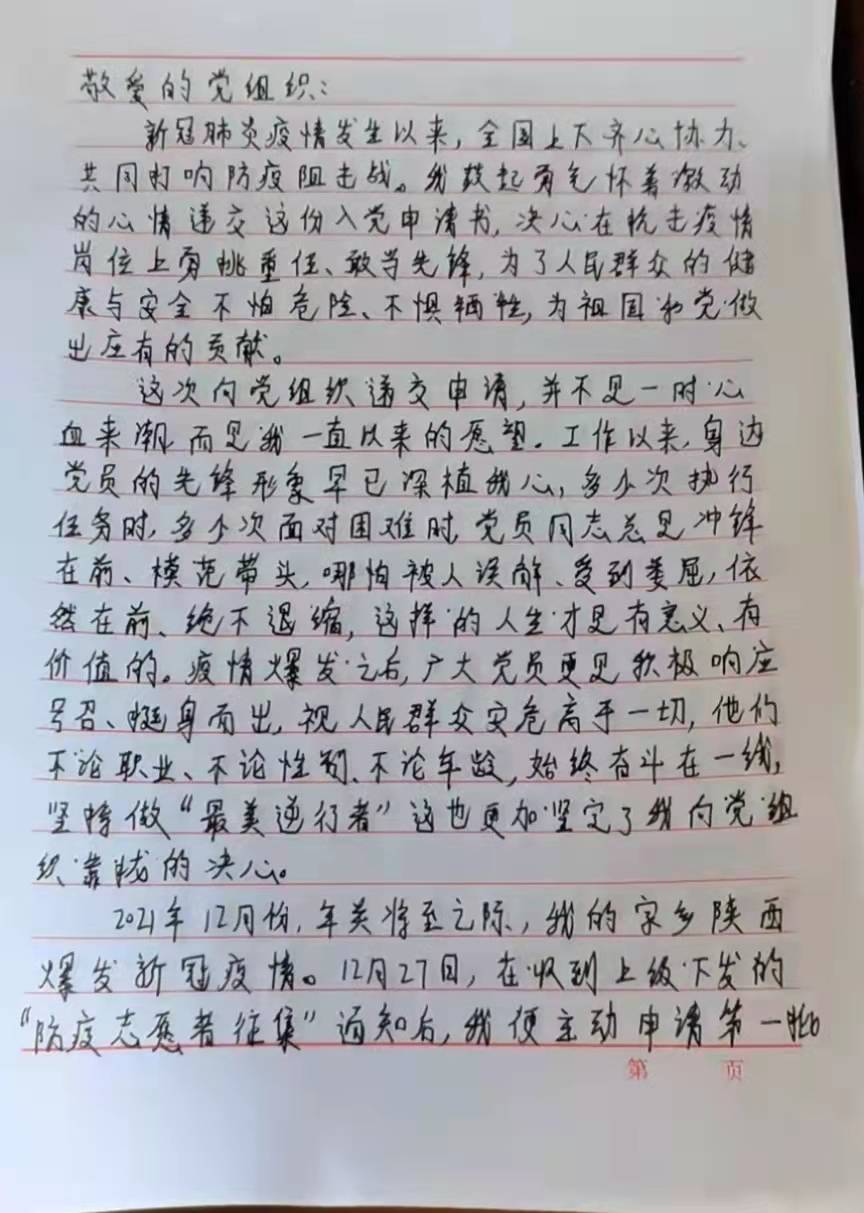 敬爱的党组织：
新冠肺炎疫情发生以来，全国上下齐心协力、
共同打响防疫阻击战。我鼓起勇气怀着激动
的心情递交这份入党申请书，决心在抗击疫情
岗位上勇挑重任、敢当先锋，为了人民群众的健
康与安全不怕危险、不惧牺牲，为祖国和党做
出应有的贡献。
这次向党组织递交申请，并不是一时心
血来潮，而是我一直以来的愿望。工作以来，身边
党员的先锋形象早已深植我心，多少次执行
任务时，多少次面对困难时，党员同志总是冲锋
在前、模范带头，哪怕被人误解、受到委屈，依
然在前、绝不退缩，这样的人生才是有意义、有
价值的。疫情爆发之后，广大党员更是积极响应
号召、挺身而出，视人民群众安危高于一切，他们
不论职业、不论性别、不论年龄，始终奋斗在一线，
坚持做“最美逆行者”这也更加坚定了我向党组
织靠拢的决心。
2021年12月份，年关将至之际，我的家乡陕西
爆发新冠疫情。12月27日，在收到上级下发的
“防疫志愿者征集”通知后，我便主动申请第一批
第 页